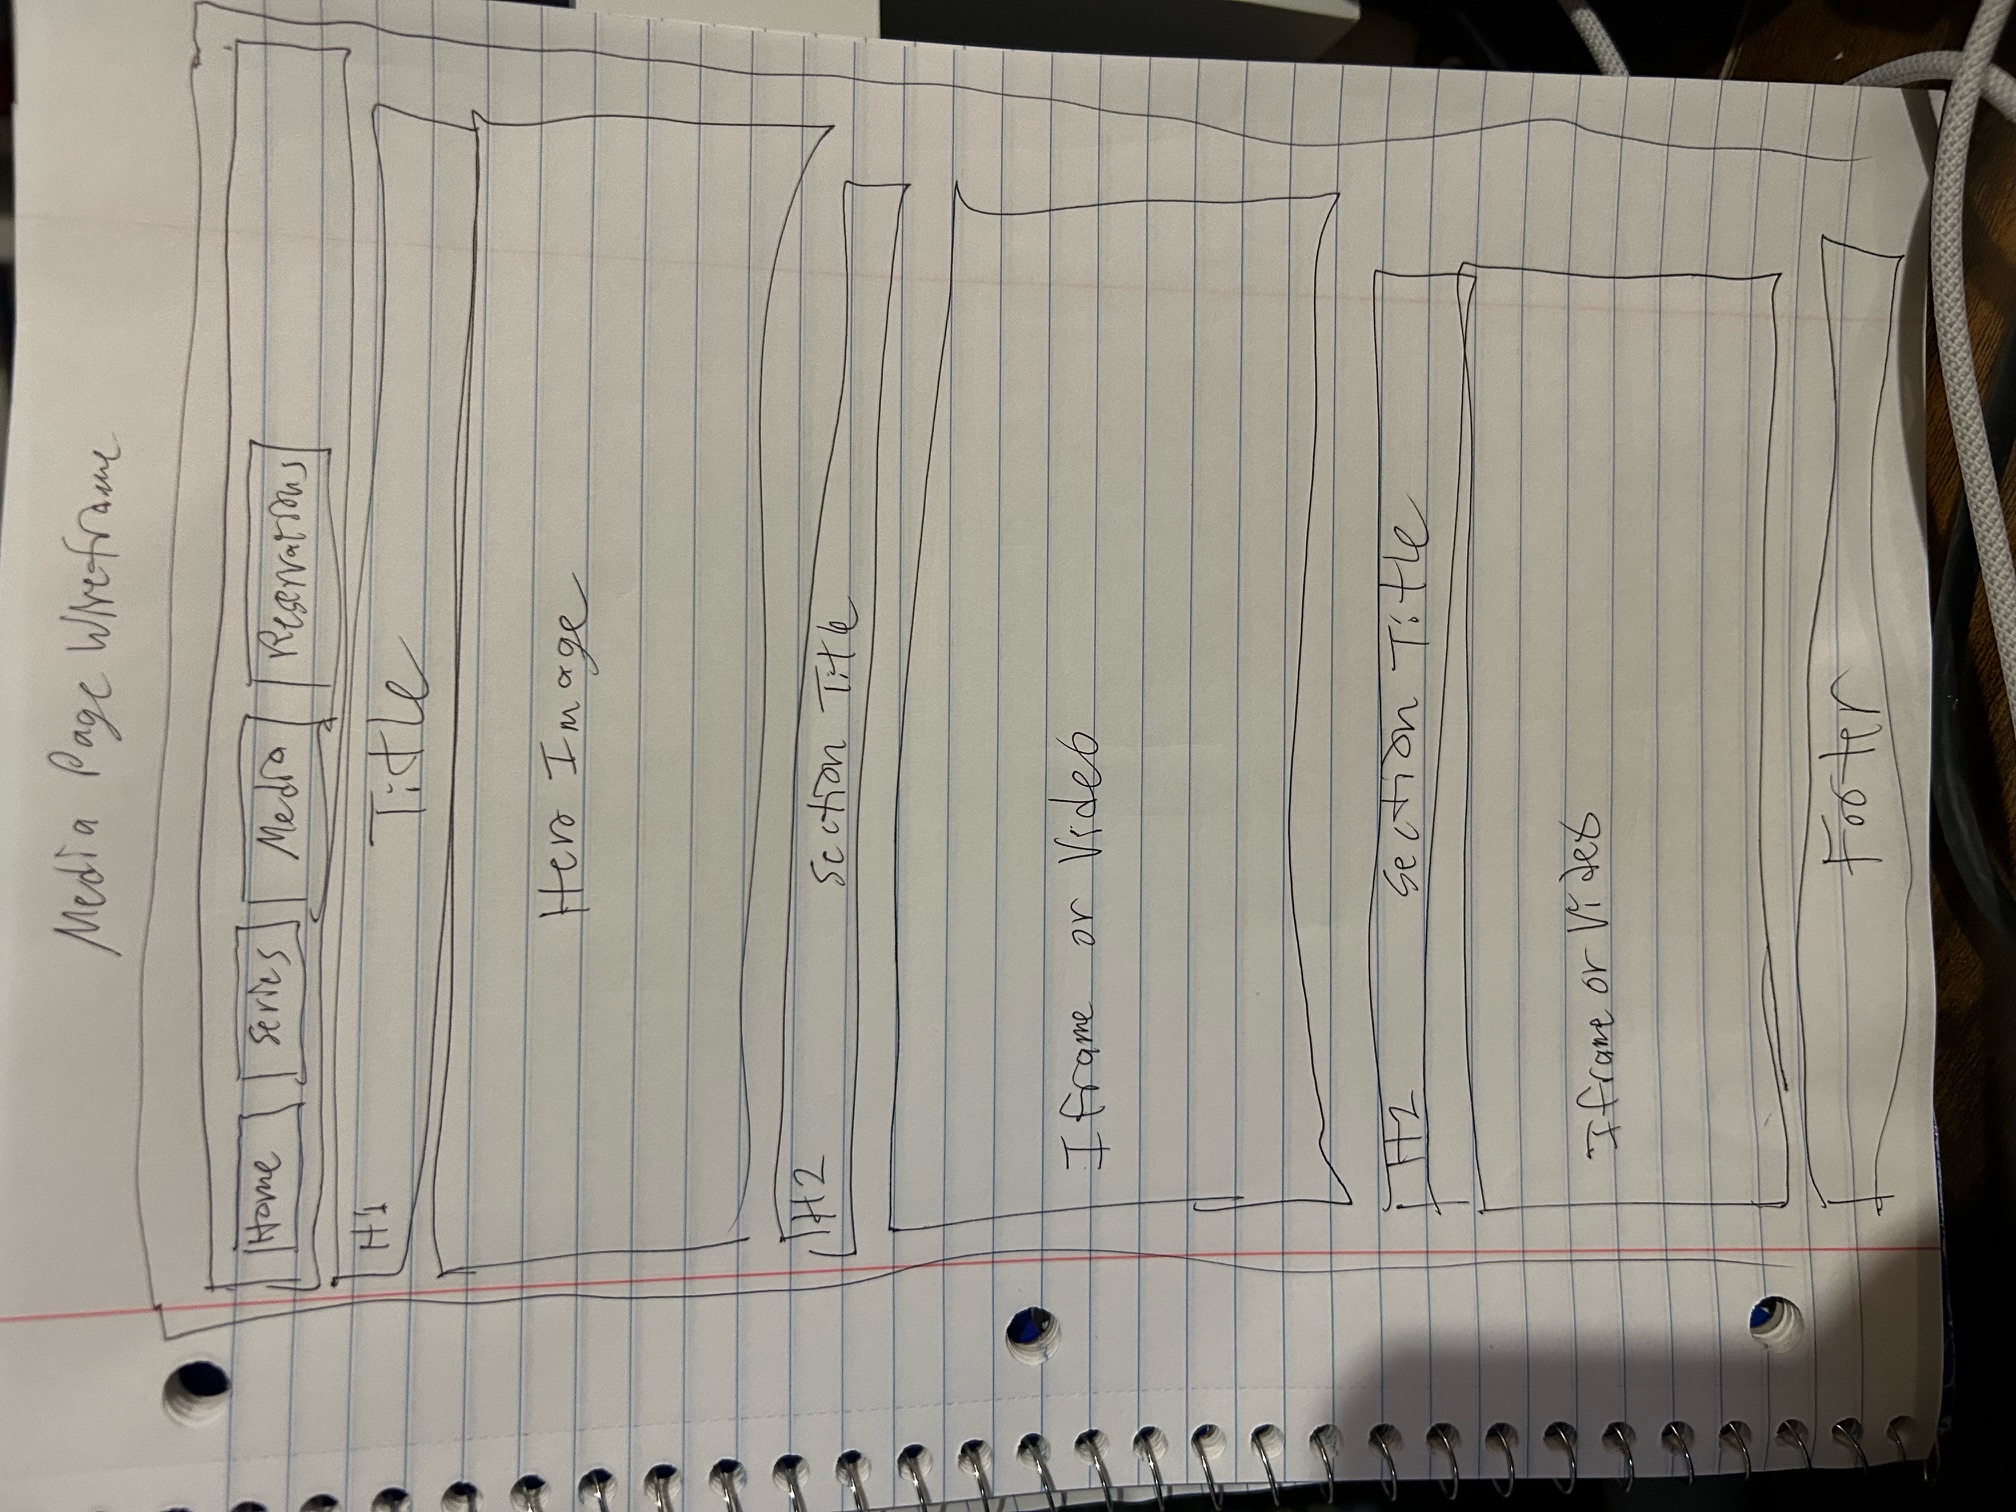 Media Page Wireframe
Home Series Media Reservations
H1 Title
Hero Image
H2 Section Title
Iframe or Video
H2 Section Title
Iframe or Video
Footer